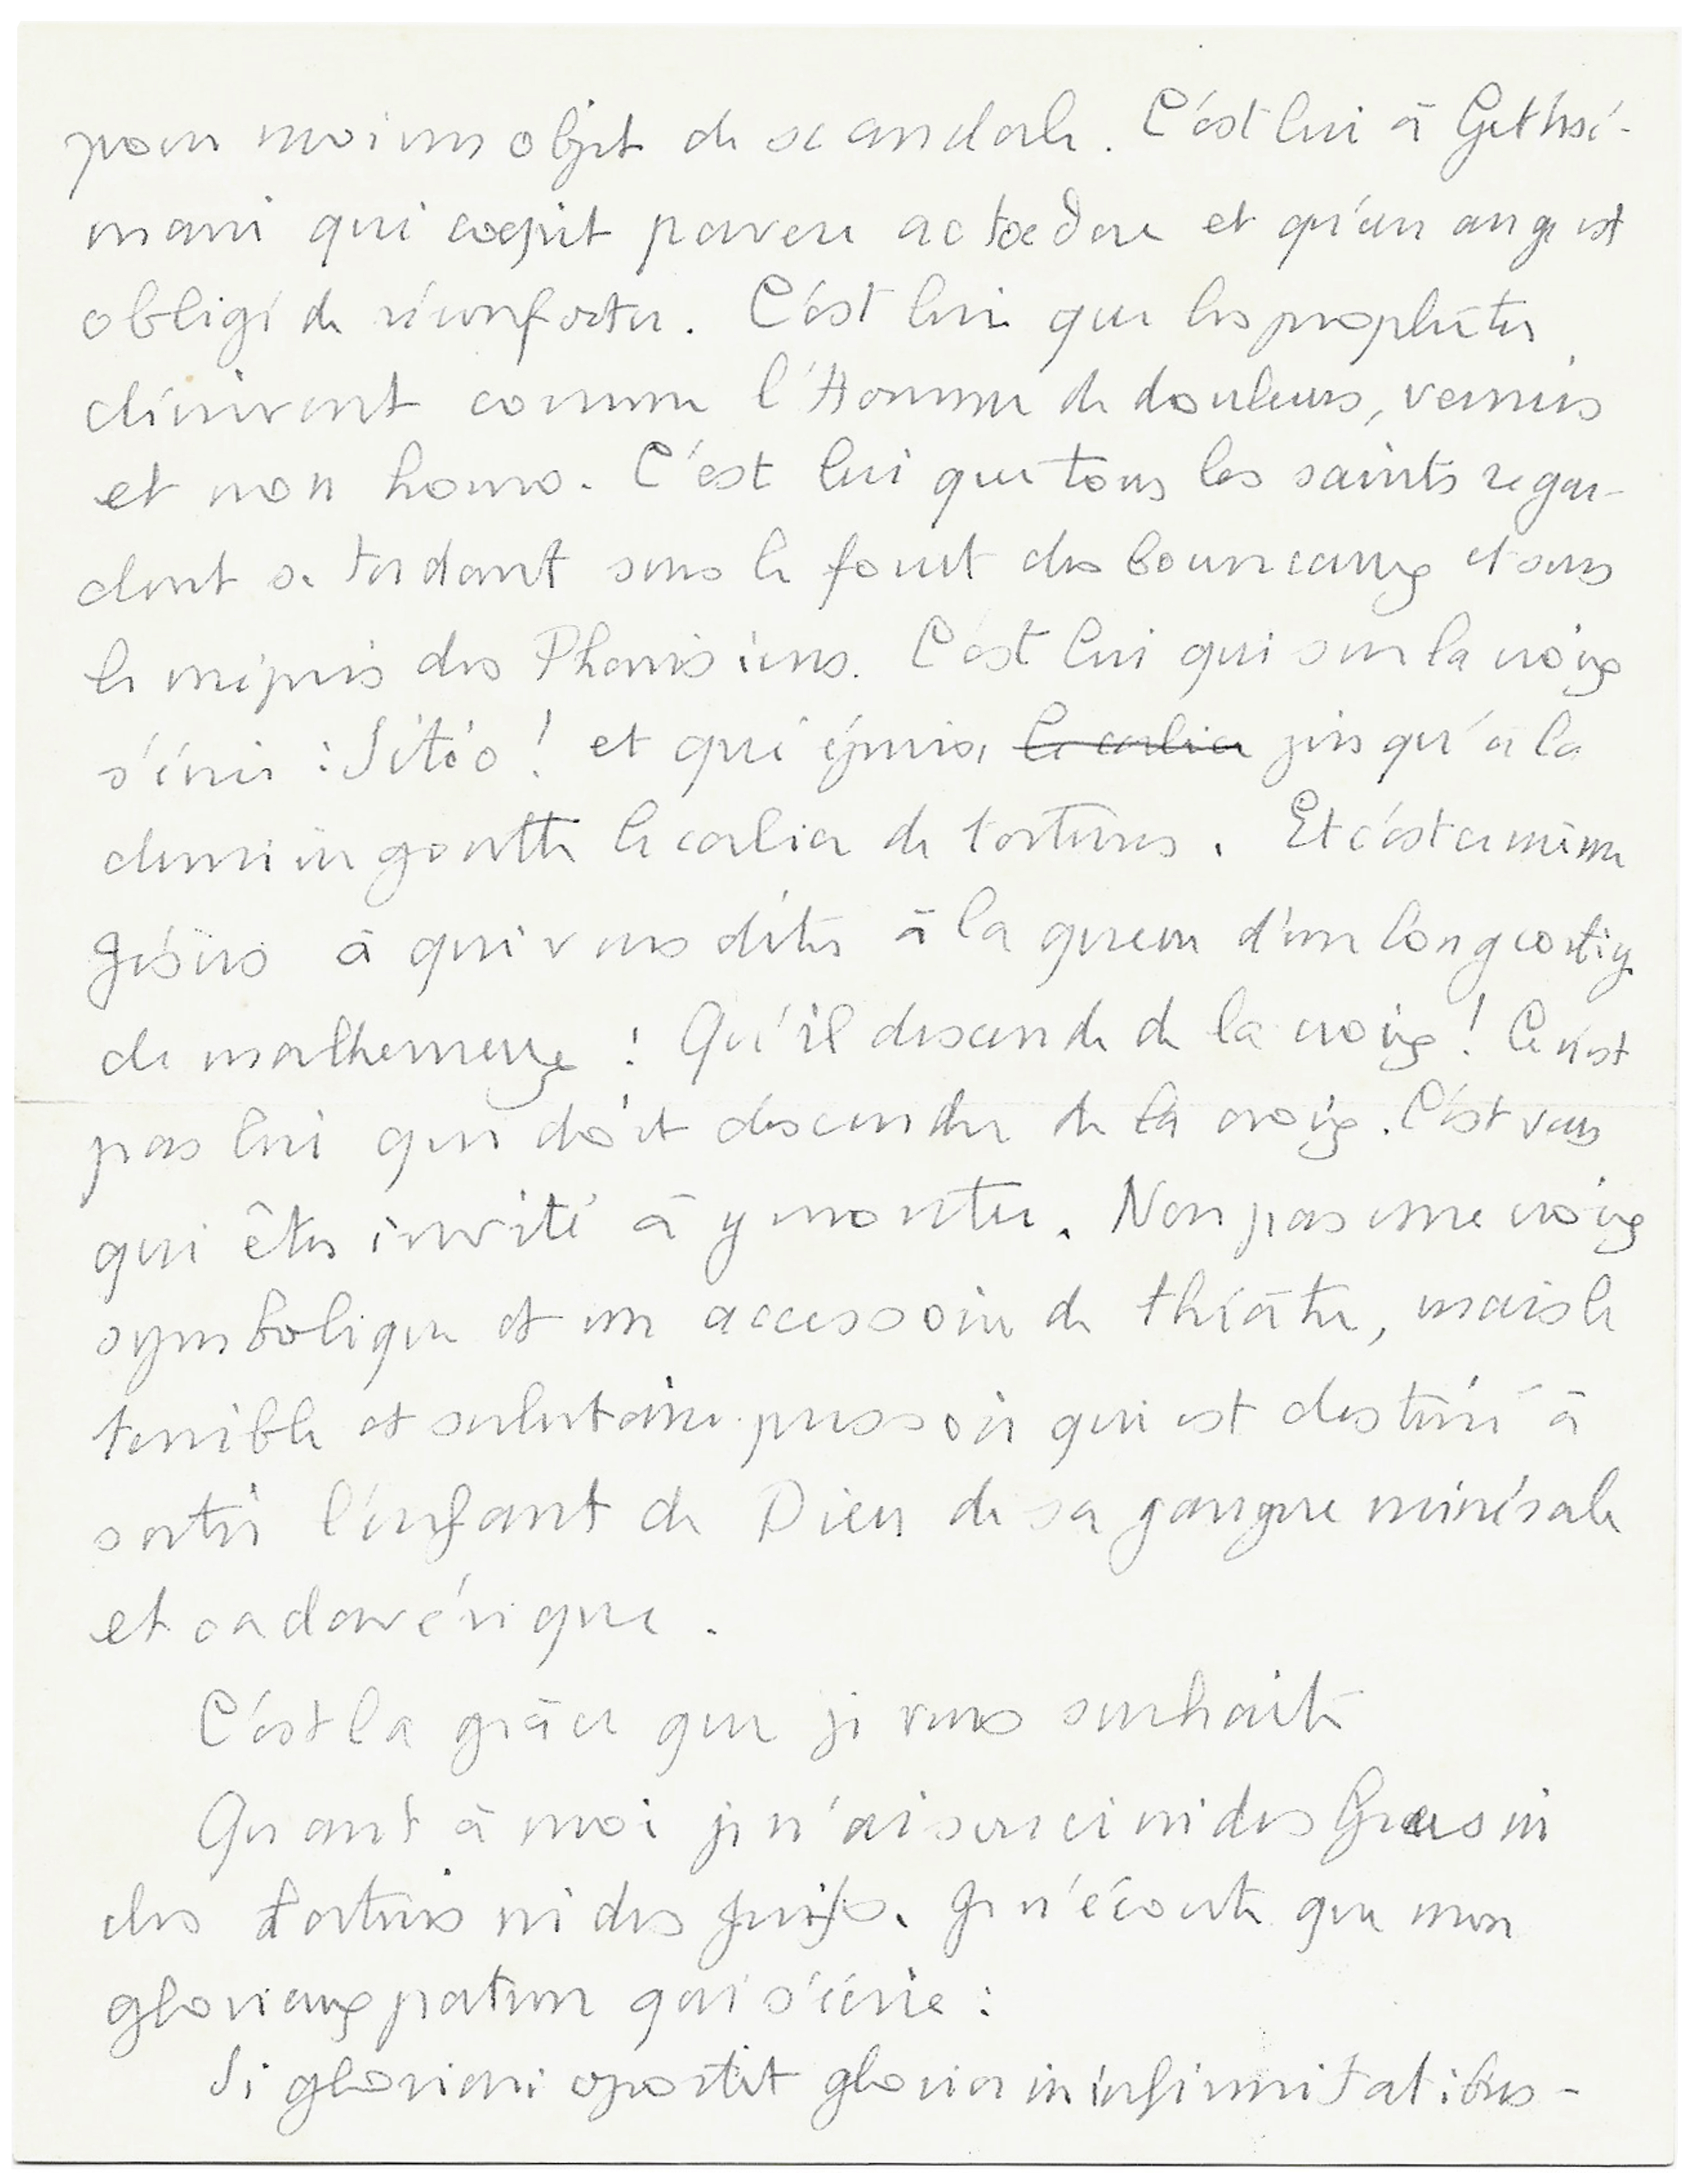 pour moi un objet de scandale. C'est lui à Gethsé-
mani qui coepit pavere ac toedere et qu'un ange est
obligé de réconforter. C'est lui que les prophètes
décrivent comme l'Homme de douleurs, vermis
et non homo. C'est lui que tous les saints regar-
dent se tordant sous le fouet des bourreaux et sous
le mépris des Pharisiens. C'est lui qui sur la croix
s'écrie : Sitio ! et qui épuise le calice jusqu'à la
dernière goutte le calice de tortures. Et c'est ce même
Jésus à qui vous dites à la queue d'un long cortège
de malheureux : Qu'il descende de la croix ! Ce n'est
pas lui qui doit descendre de la croix. C'est vous
qui êtes invité à y monter. Non pas une croix
symbolique et un accessoire de théâtre, mais le
terrible et salutaire pressoir qui est destiné à
sortir l'enfant de Dieu de sa gangue minérale
et cadavérique.
C'est la grâce que je vous souhaite
Quant à moi je n'ai souci ni des Grecs ni
des Tartares ni des Juifs. Je n'écoute que mon
glorieux patron qui s'écrie :
Si gloriari oportet glorior in infirmitatibus -